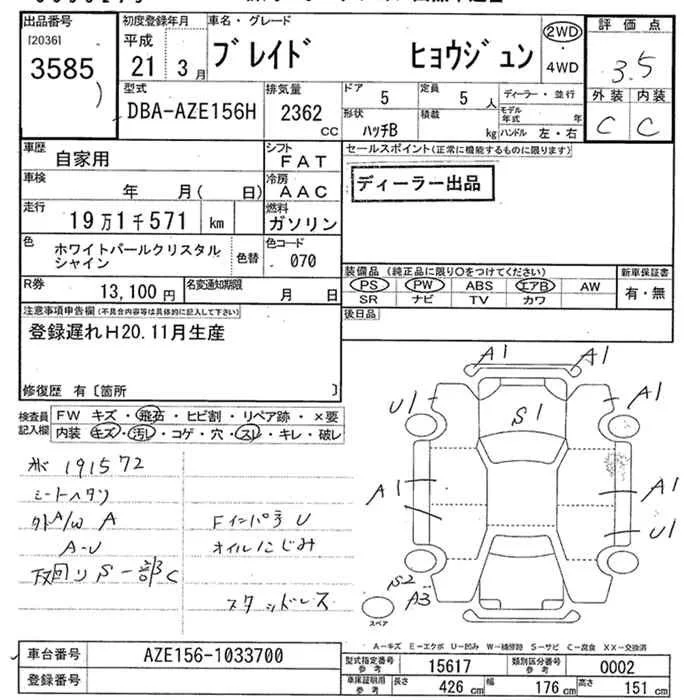 出品番号
[2036]
3585
初度登録年月
平成
21年3月
車名・グレード
ブレイド ヒョウジュン
2WD
・
4WD
評価点
3.5
外装 内装
C C
型式
DBA-AZE156H
排気量
2362
CC
ドア
5
定員
5人
ディーラー・並行
形状
ハッチB
積載
kg
モデル年式
年
ハンドル 左・右
車歴
自家用
シフト
FAT
セールスポイント(正常に機能するものに限ります)
ディーラー出品
車検
年 月( 日)
冷房
AAC
走行
19万1千571 km
燃料
ガソリン
色
ホワイトパールクリスタル
シャイン
色替
色コード
070
R券
13,100円
名変通知期限
月 日
装備品(純正品に限り○をつけてください)
新車保証書
PS PW ABS エアB AW
有・無
SR ナビ TV カワ
後日品
注意事項申告欄(不具合内容等は具体的に記入して下さい)
登録遅れH20.11月生産
修復歴 有〔箇所 〕
検査員
記入欄
FW キズ・飛石・ヒビ割・リペア跡・×要
内装 キズ・汚レ・コゲ・穴・スレ・キレ・破レ
191572
シートヘタリ
外A/W A
A-U
下回りS一部C
Fインパラ U
オイルにじみ
スタッドレス
A1 A1
U1 A1
S1
A1 A1
U1
S2
A3
スペア
A-キズ E-エクボ U-凹み W-補修跡 S-サビ C-腐食 XX-交換済
車台番号
AZE156-1033700
登録番号
型式指定番号
参考
15617
類別区分番号
参考
0002
車庫証明用
参考
長さ
426 cm
幅
176 cm
高さ
151 cm